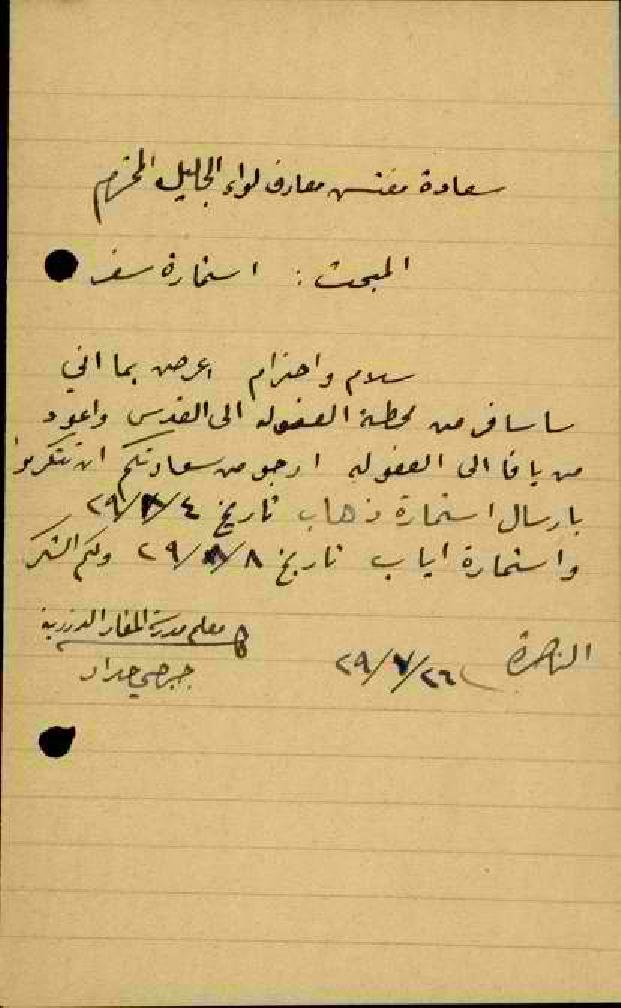 سعادة مفتش معارف لواء الجليل المحترم
المبحث : استمارة سفر
سلام واحترام اعرض بما اني
ساسافر من محطة العفوله الى القدس واعود
من يافا الى العفوله ارجو من سعادتكم ان تتكرموا
بارسال استمارة ذهاب تاريخ ٤/٨/٢٩
واستمارة اياب تاريخ ٨/٨/٢٩ ولكم الشكر
معلم مدرسة المغار الدرزية
الناصرة ٢٦/٧/٢٩
حداد